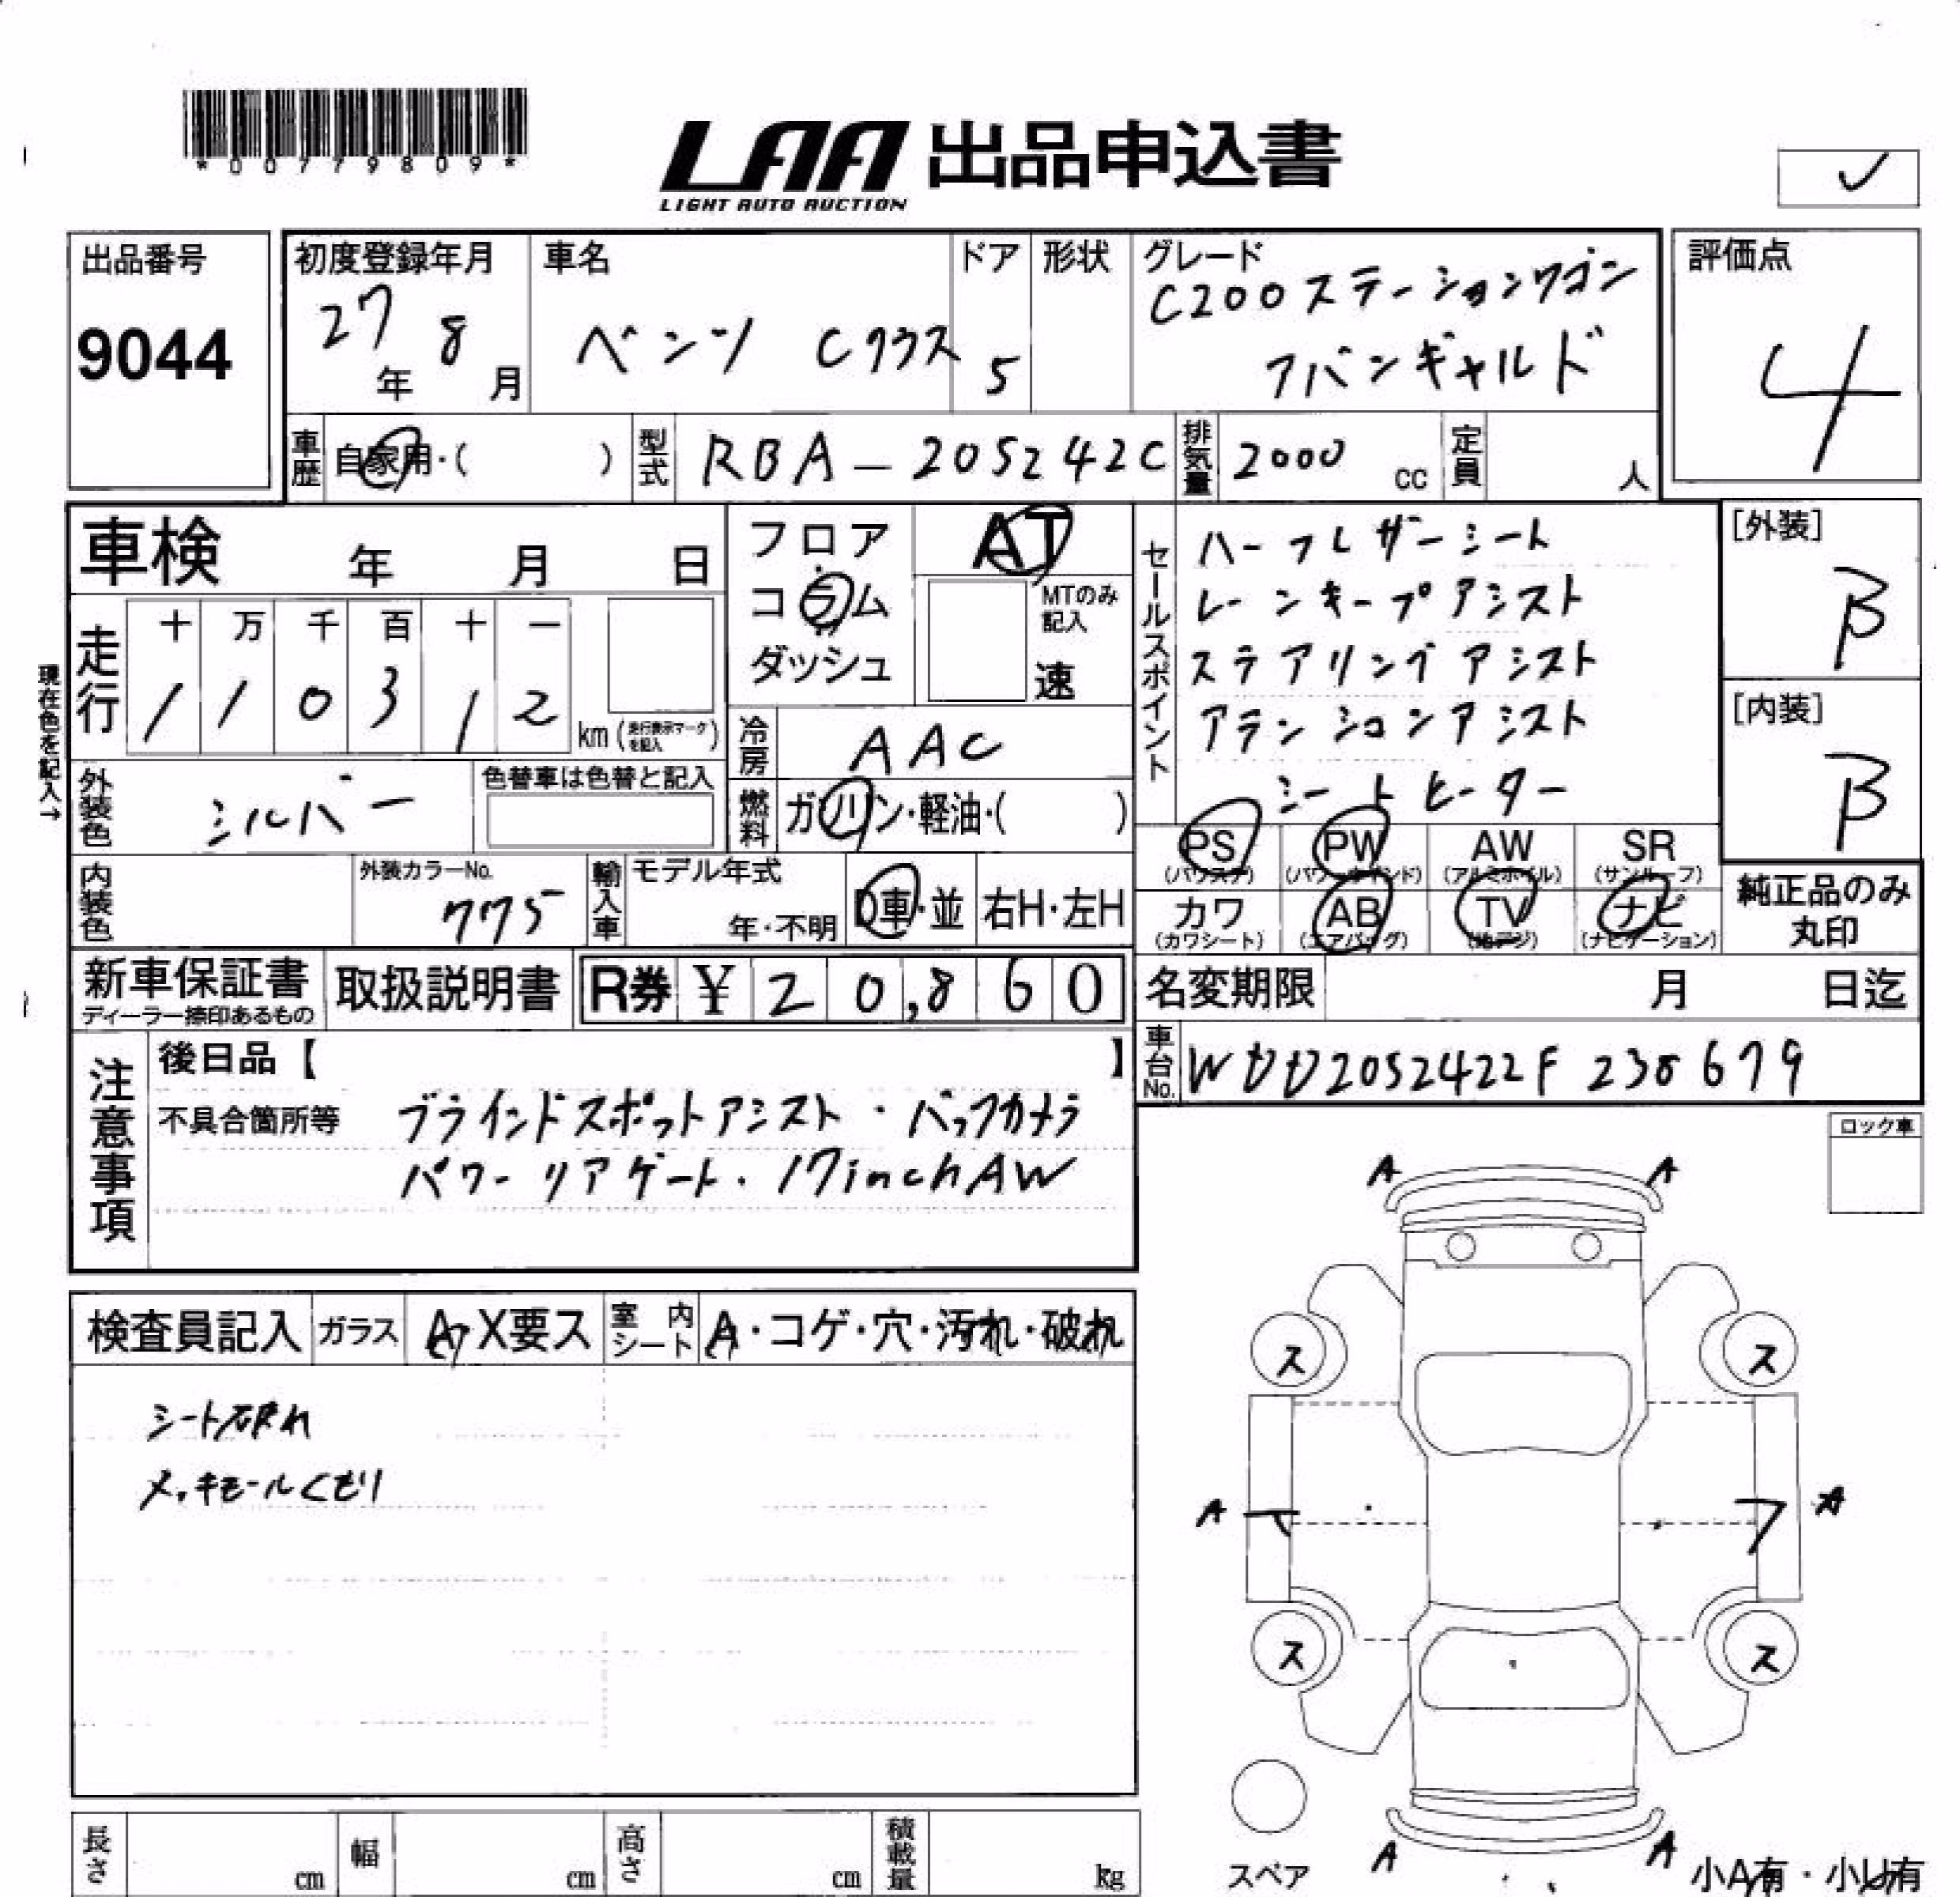 *00779809*
LAA 出品申込書
LIGHT AUTO AUCTION
✓
出品番号
9044
初度登録年月
27年 8月
車名
ベンツ Cクラス
ドア
5
形状
グレード
C200ステーションワゴン
アバンギャルド
評価点
4
車歴
自家用・( )
型式
RBA-205242C
排気量
2000 cc
定員
人
車検 年 月 日
フロア
コラム
ダッシュ
AT
MTのみ
記入
速
走行
十 万 千 百 十 一
1 1 0 3 1 2
km(走行表示マークを記入)
現在色を記入→
冷房
AAC
外装色
シルバー
色替車は色替と記入
燃料
ガソリン・軽油・( )
内装色
外装カラーNo.
775
輸入車
モデル年式
年・不明
D車・並
右H・左H
セールスポイント
ハーフレザーシート
レーンキープアシスト
ステアリングアシスト
アテンションアシスト
シートヒーター
[外装]
B
[内装]
B
PS PW AW SR
(パワステ) (パワーウインド) (アルミホイル) (サンルーフ)
カワ AB TV ナビ
(カワシート) (エアバッグ) (地デジ) (ナビゲーション)
純正品のみ
丸印
新車保証書
ディーラー捺印あるもの
取扱説明書
R券 ¥ 20,860
名変期限 月 日迄
車台No.
WDD2052422F238679
注意事項
後日品【 】
不具合箇所等
ブラインドスポットアシスト・バックカメラ
パワーリアゲート・17inchAW
ロック車
検査員記入
ガラス
A・X要ス
室内シート
A・コゲ・穴・汚れ・破れ
シート破れ
メッキモールくもり
A A
ス ス
A A
ス ス
A A
スペア
小A有・小U有
長さ cm
幅 cm
高さ cm
積載量 kg